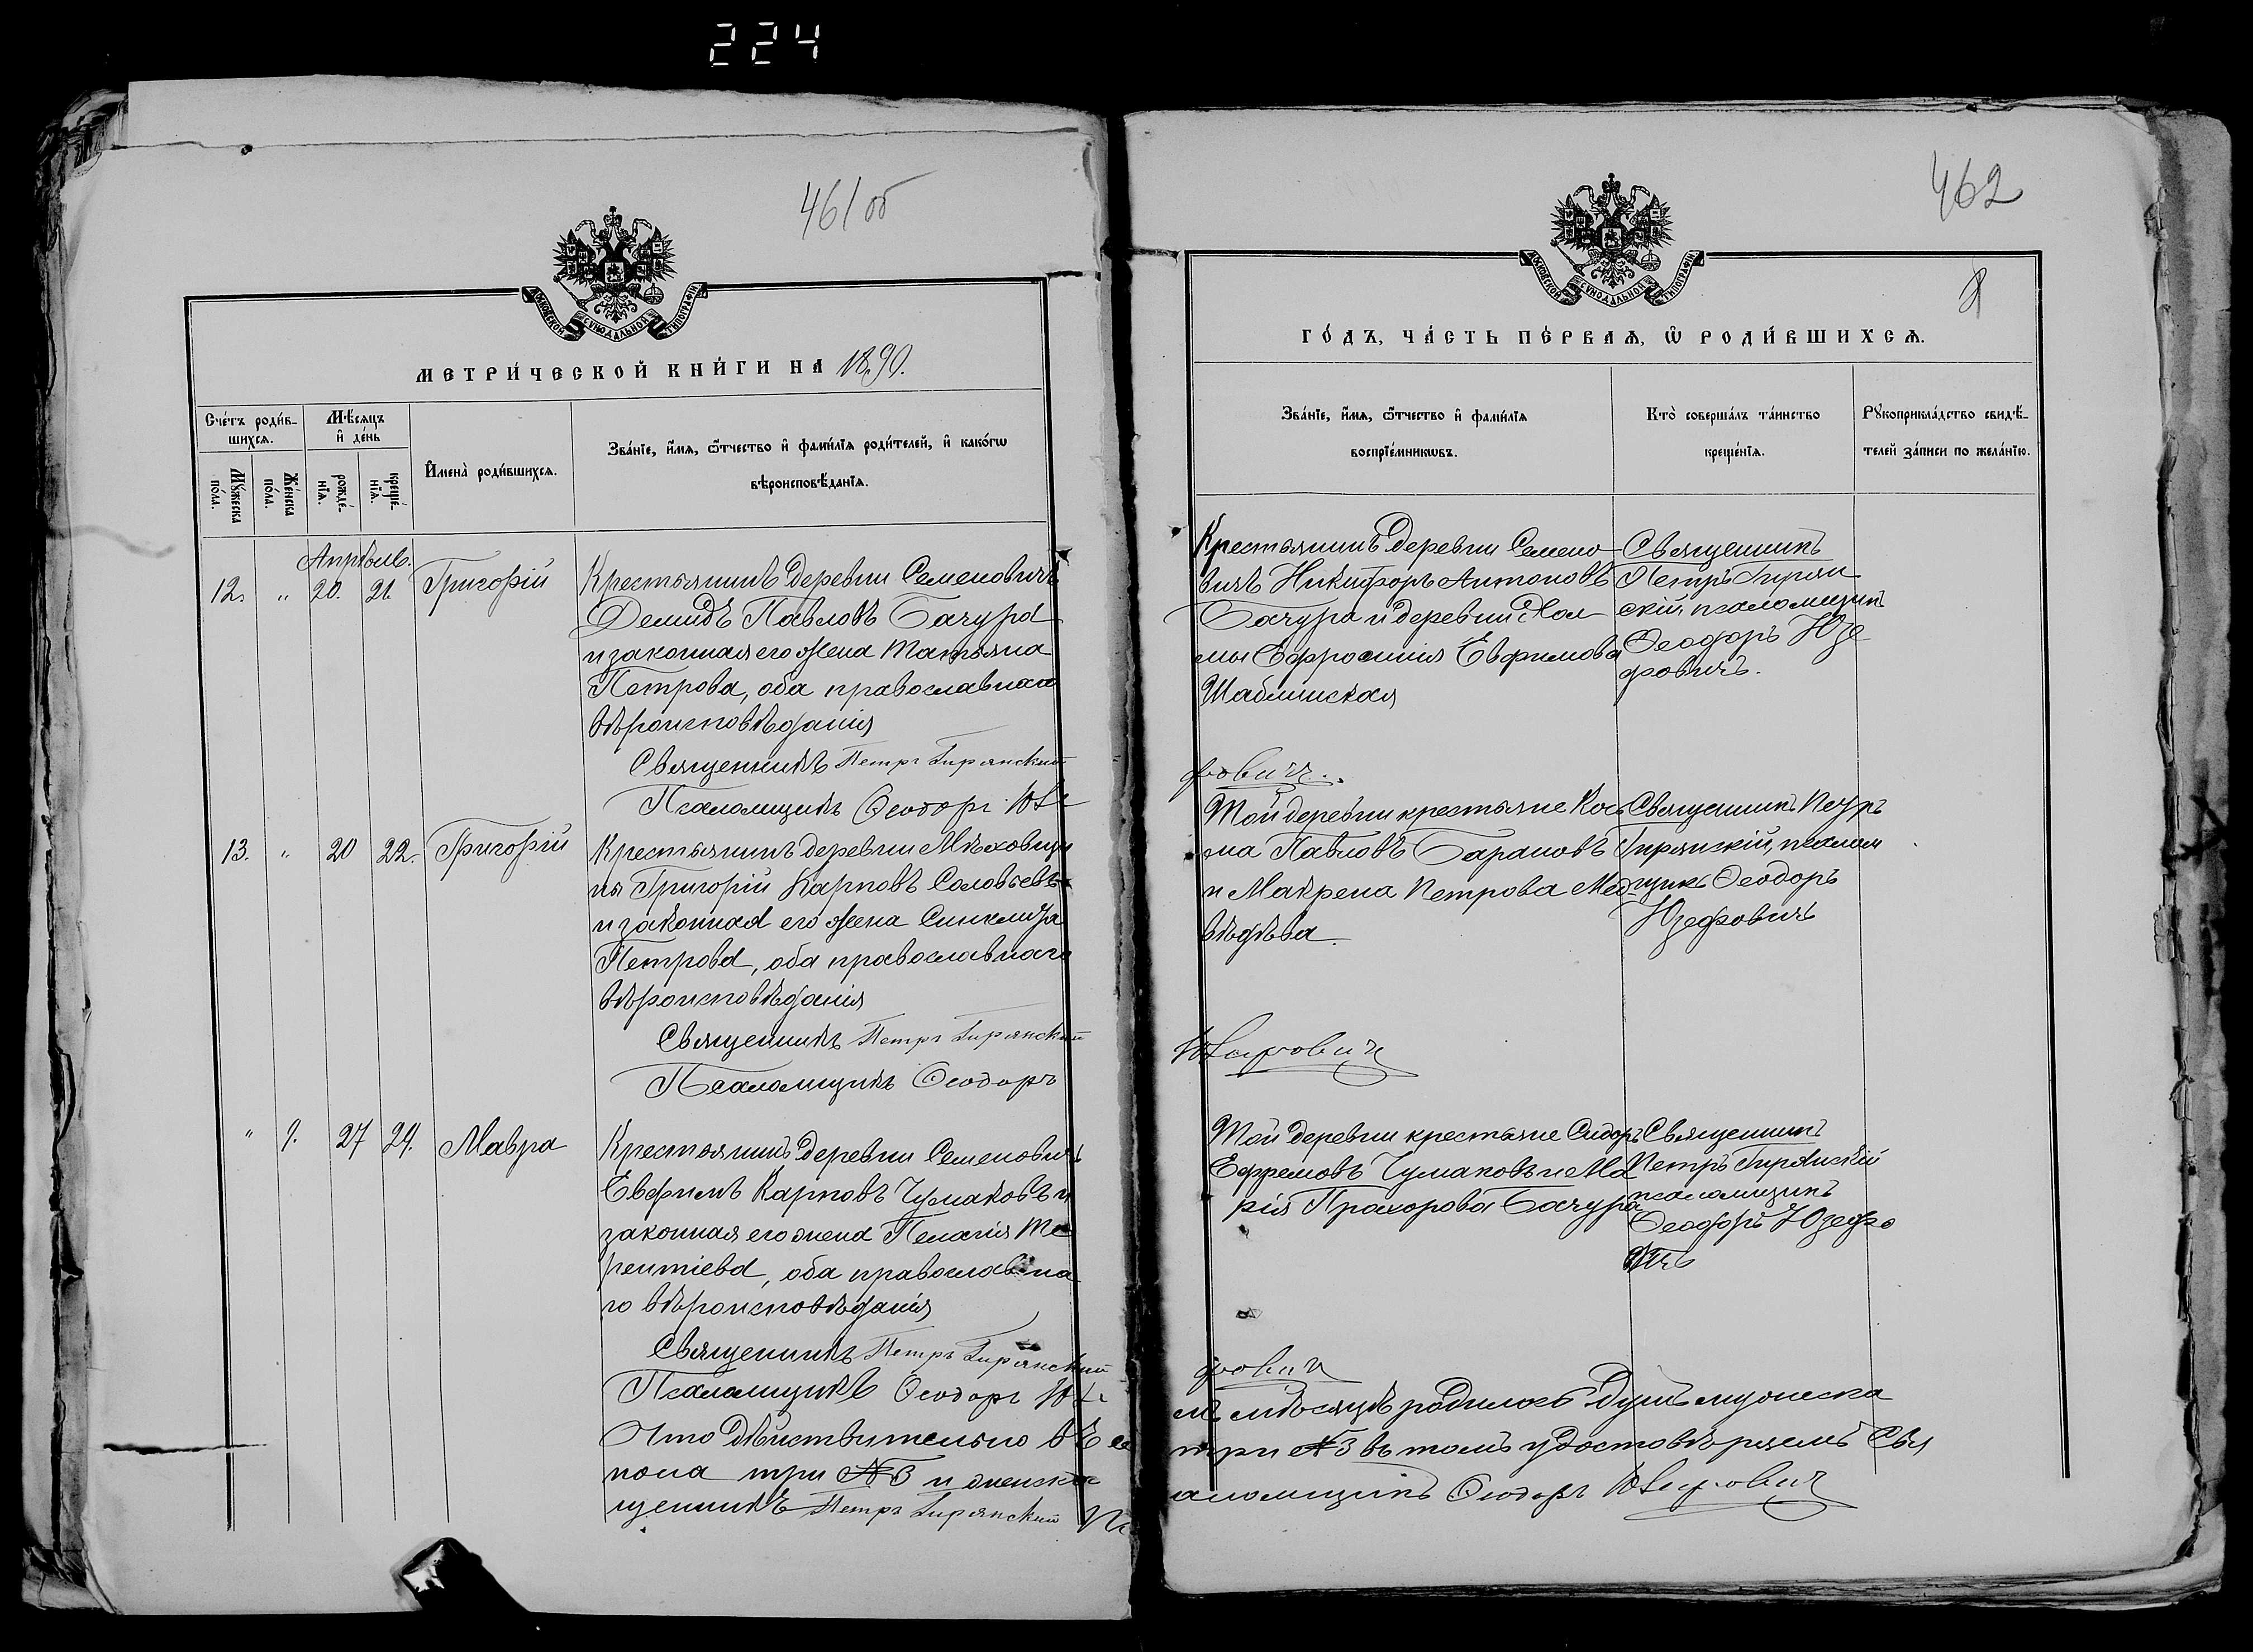 224
461 об
МОСКОВСКОЙ СѴНОДАЛЬНОЙ ТИПОГРАФІИ
МЕТРИ́ЧЕСКОЙ КНИ́ГИ НА 1890.
Сче́тъ роди́в-
шихсѧ.
Мѣ́сѧцъ
и҆ де́нь
Мꙋ́жеска
по́ла.
Же́нска
по́ла.
рожде́-
нїѧ.
креще́-
нїѧ.
И҆мена̀ роди́вшихсѧ.
Зва́нїе, и҆́мѧ, ѻ҆́тчество и҆ фамѝлїѧ роди́телей, и҆ како́гѡ
вѣроисповѣ́данїѧ.
Апрѣль.
12. " 20. 21. Григорій
Крестьянинъ деревни Семеновичъ
Демидъ Павловъ Бачура
и законная его жена Татьяна
Петрова, оба православнаго
вѣроисповѣданія
Священникъ Петръ Гирянскій
Псаломщикъ Ѳеодоръ Юзе
13. " 20 22. Григорій
Крестьянинъ деревни Мѣховищи
ны Григорій Карповъ Соловьевъ
и законная его жена Синклита
Петрова, оба православнаго
вѣроисповѣданія
Священникъ Петръ Гирянскій
Псаломщикъ Ѳеодоръ
" 9. 27 29. Мавра
Крестьянинъ деревни Семеновичъ
Евфимъ Карповъ Чумаковъ и
законная его жена Пелагія Те
рентіева, оба православна
го вѣроисповѣданія
Священникъ Петръ Гирянскій
Псаломщикъ Ѳеодоръ Юзе
Что дѣйствительно въ се
пола три №3 и женска
щенникъ Петръ Гирянскій Пс
462
МОСКОВСКОЙ СѴНОДАЛЬНОЙ ТИПОГРАФІИ
ГО́ДЪ, ЧА́СТЬ ПЕ́РВАѦ, Ѡ҆ РОДИ́ВШИХСѦ.
Зва́нїе, и҆́мѧ, ѻ҆́тчество и҆ фамѝлїѧ
воспрїе́мникѡвъ.
Кто̀ соверша́лъ та́инство
креще́нїѧ.
Рꙋкоприкла́дство свидѣ́-
телей за́писи по жела́нїю.
Крестьянинъ деревни Семено
вичъ Никифоръ Антоновъ
Бачура и деревни Хол
мы Ефросинія Евфимова
Шаблинская
Священникъ
Петръ Гирян
скій, псаломщикъ
Ѳеодоръ Юзе
фовичъ.
фовичъ.
Той деревни крестьяне Кось
ма Павловъ Барановъ
и Макрена Петрова Мед
вѣдѣва.
Священникъ Петръ
Гирянскій, псалом
щикъ Ѳеодоръ
Юзефовичъ
Юзефовичъ
Той деревни крестьяне Сидоръ
Ефремовъ Чумаковъ и Ма
рія Прохорова Бачура
Священникъ
Петръ Гирянскій
псаломщикъ
Ѳеодоръ Юзефо
вичъ
фовичъ
мъ мѣсяцѣ родилось душъ мужеска
три №3 въ томъ удостовѣряемъ Свя
аломщикъ Ѳеодоръ Юзефовичъ